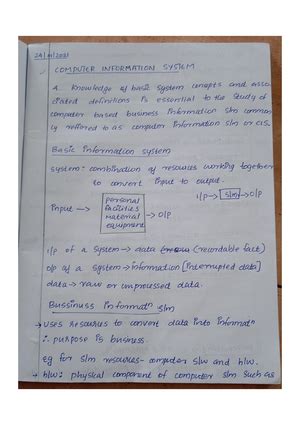 COMPUTER INFORMATION SYSTEM
A knowledge of basic system concepts and asso
ciated definitions is essential to the study of
computer based business information s/m common
ly reffered to as computer information s/m or CIS.
Basic information system
system: combination of resources working together
to convert input to output.
i/p → s/m → o/p
input →
personal
facilities
material
equipment
→ o/p
i/p of a system → data (recordable fact)
o/p of a system → information [interrupted data]
data → raw or unprocessed data.
Bussiness informatⁿ s/m
→ uses resources to convert data into informatⁿ
∴ purpose is business.
eg for s/m resources - computer s/w and h/w.
→ h/w: physical component of computer s/m such as